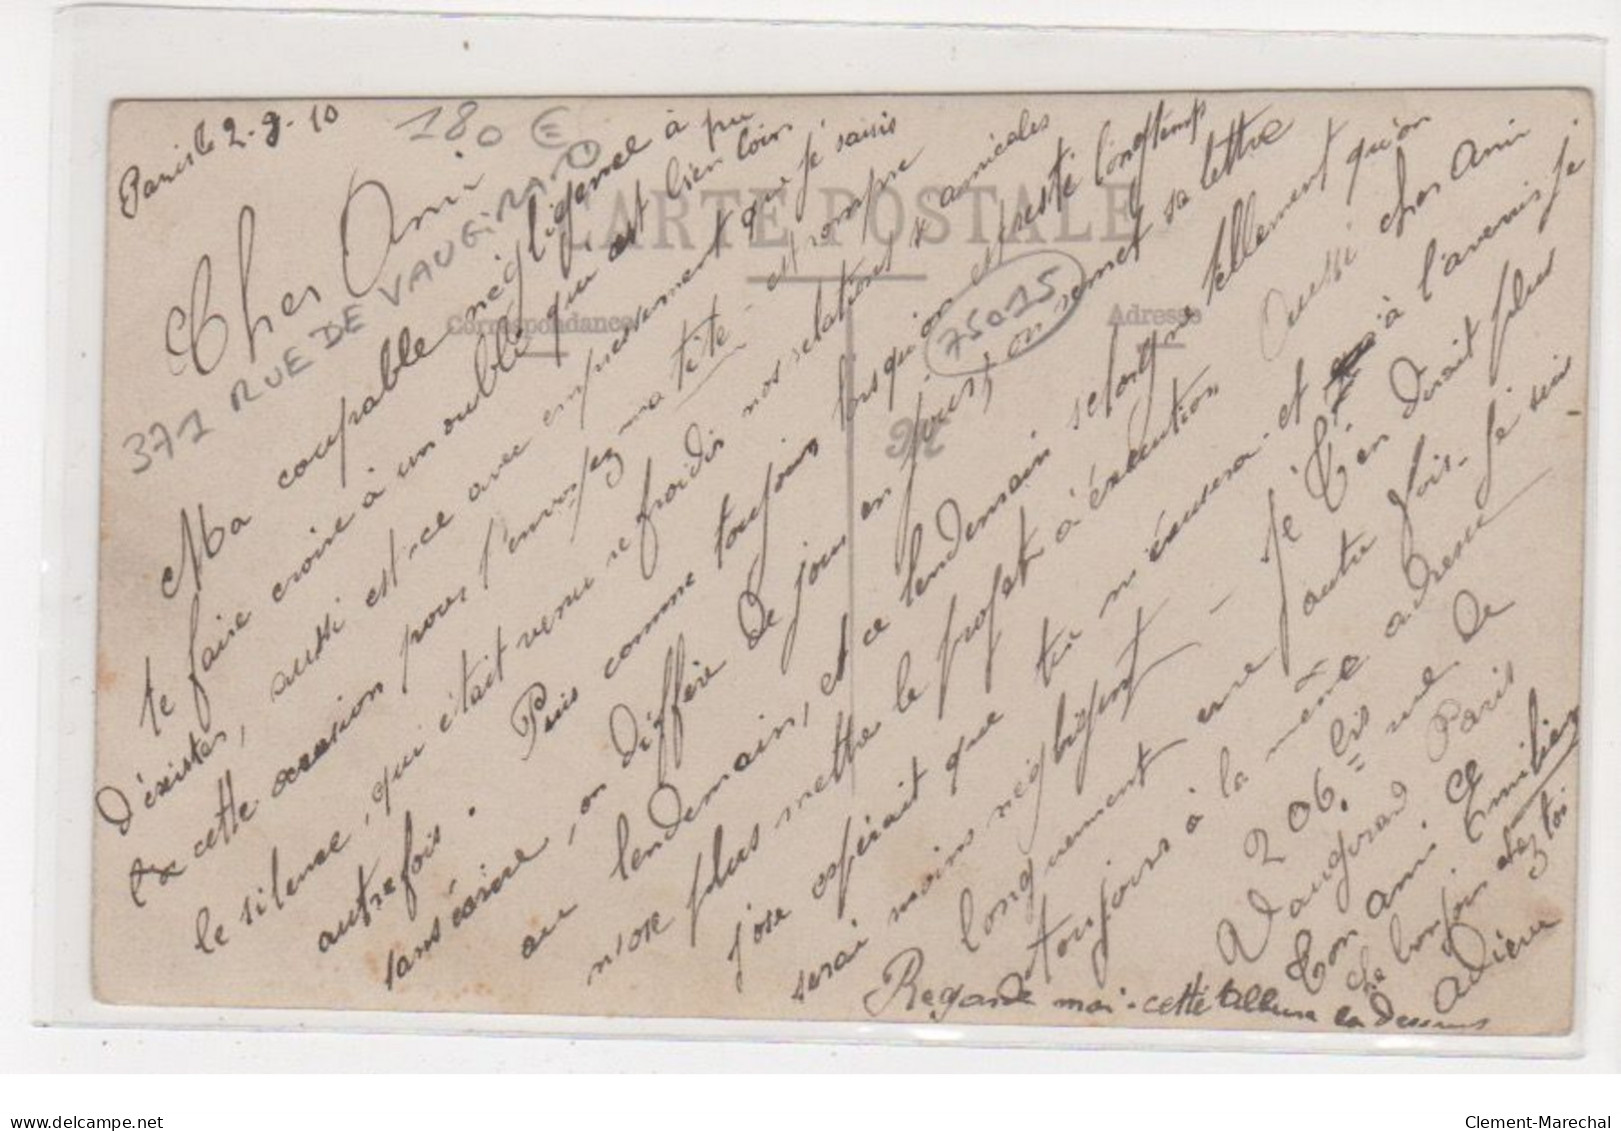 Paris le 2-9-10
180 €
Cher Ami
371 RUE DE VAUGIRARD
CARTE POSTALE
Correspondance
Adresse
75015
Ma coupable négligence à pu
te faire croire à un oubli qui est bien loin
d'exister, aussi est-ce avec empressement que je saisis
cette occasion pour t'envoyez ma tête - et rompre
le silence, qui était venu refroidir nos relations amicales
autrefois. Puis comme toujours lorsqu'on est resté longtemps
sans écrire, on diffère de jour en jour, on remet sa lettre
au lendemain, et ce lendemain seloigne tellement qu'on
n'ose plus mettre le projet à éxécution Aussi cher Ami
j'ose espérait que tu m'éxcusera et à l'avenir je
serai moins négligent - Je t'en dirait plus
longuement une autre fois - Je suis
toujours à la même adresse -
206 bis rue de
Vaugirard Paris
Ton Ami Emilien
Le bonjour chez toi
Adieu
Regarde moi cette allure la dessus
www.delcampe.net
Clement-Marechal